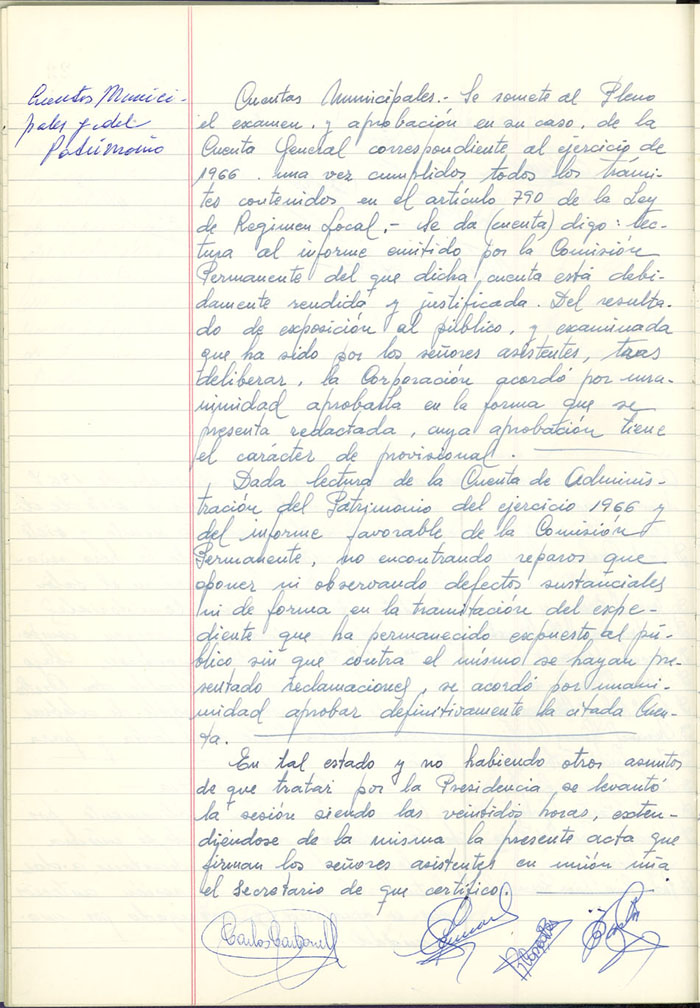 Cuentas Munici-
pales y del
Patrimonio
Cuentas Municipales.- Se somete al Pleno
el examen, y aprobación en su caso, de la
Cuenta General correspondiente al ejercicio de
1966, una vez cumplidos todos los trámi-
tes contenidos en el artículo 790 de la Ley
de Regimen Local.- Se da (cuenta) digo: lec-
tura al informe emitido por la Comisión
Permanente del que dicha cuenta está debi-
damente rendida y justificada. Del resulta-
do de exposición al público, y examinada
que ha sido por los señores asistentes, tras
deliberar, la Corporación acordó por una-
nimidad aprobarla en la forma que se
presenta redactada, cuya aprobación tiene
el carácter de provisional.
Dada lectura de la Cuenta de Adminis-
tración del Patrimonio del ejercicio 1966 y
del informe favorable de la Comisión
Permanente, no encontrando reparos que
oponer ni observando defectos sustanciales
ni de forma en la tramitación del expe-
diente que ha permanecido expuesto al pú-
blico sin que contra el mismo se hayan pre-
sentado reclamaciones, se acordó por unani-
midad aprobar definitivamente la citada Cuen-
ta.
En tal estado y no habiendo otros asuntos
de que tratar por la Presidencia se levantó
la sesión siendo las veintidos horas, exten-
diéndose de la misma la presente acta que
firman los señores asistentes en unión
el Secretario de que certifico.
Carlos Carbonell